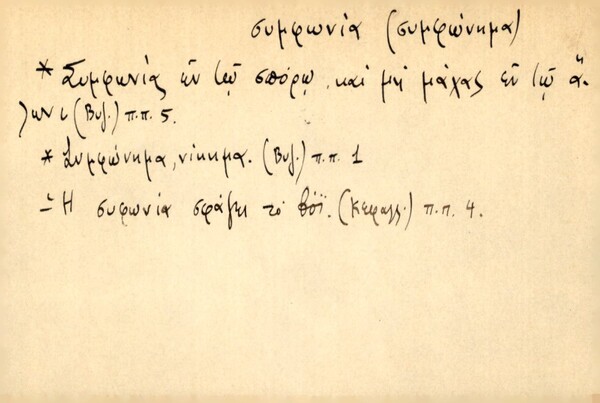 συμφωνία (συμφώνημα)
* Συμφωνίας ἐν τῷ σπόρῳ, καὶ μὴ μάχας ἐν τῷ ἅ-
λωνι (Βυζ.) π.π. 5.
* Συμφώνημα, νίκημα. (Βυζ.) π.π 1
- Ἡ συφωνία σφάζει τὸ βόϊ. (Κεφαλλ.) π.π. 4.